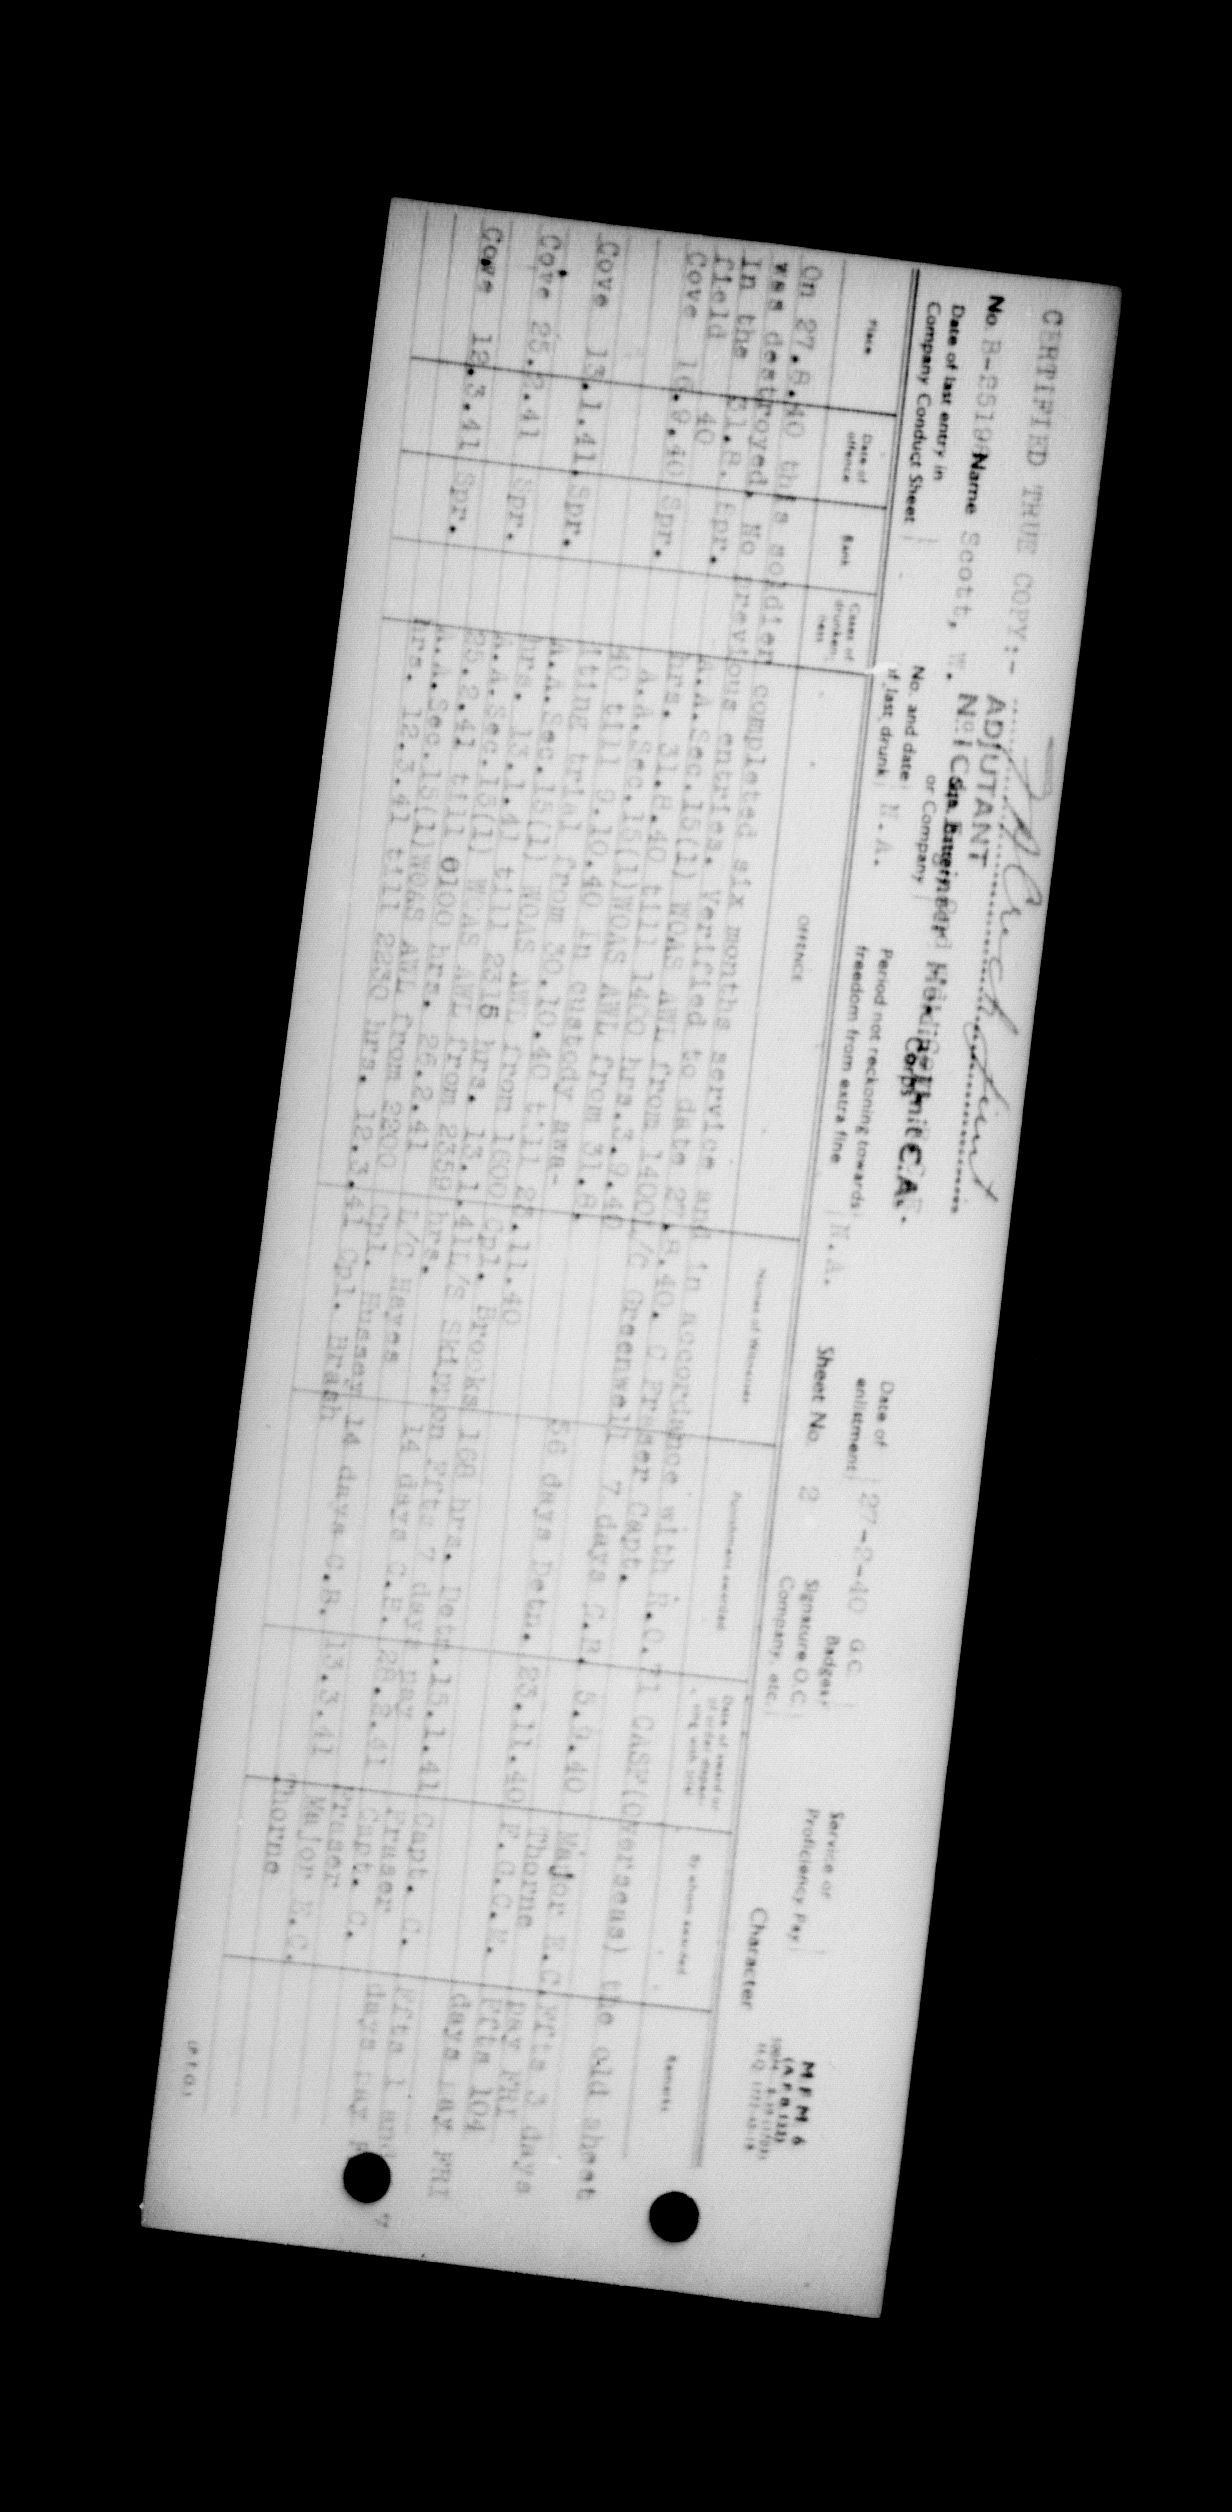 CERTIFIED TRUE COPY:-
ADJUTANT
M.F.M. 6
No. Name Scott, W.
No 1 Cdn Engineer Holding Unit C.A.
or Company
Corps
Date of enlistment 27-2-40
G.C. Badges
Service or Proficiency Pay
Date of last entry in Company Conduct Sheet
No. and date of last drunk N.A.
Period not reckoning towards freedom from extra fine N.A.
Sheet No. 2
Signature O.C. Company, etc.
Character
Place
Date of offence
Rank
Cases of drunkenness
OFFENCE
Names of Witnesses
Punishment awarded
Date of award or of order dispensing with trial
By whom awarded
Remarks
On 27.8.40 this soldier completed six months service and in accordance with R.O.71 CASF(Overseas) the old sheet
was destroyed. No previous entries. Verified to date 27.8.40. C Fraser Capt.
In the field 31.8.40 Spr. A.A.Sec.15(1) WOAS AWL from 1400 hrs. 31.8.40 till 1400 hrs.3.9.40 L/C Greenwell 7 days C.B. 5.9.40 Major E.C. Thorne Ffts 3 days pay FRI
Cove 16.9.40 Spr. A.A.Sec.15(1)WOAS AWL from 31.8. till 9.10.40 in custody awaiting trial from 30.10.40 till 22.11.40 56 days Detn. 23.11.40 F.G.C.M. Ffts 104 days pay FRI
Cove 13.1.41. Spr. A.A.Sec.15(1) WOAS AWL from 1600 hrs. 13.1.41 till 2315 hrs. 13.1.41 Cpl. Brooks L/S Skipton 168 hrs. Detn. Ffts 7 days pay 15.1.41 Capt. C. Fraser Ffts 1 and days pay
Cove 25.2.41 Spr. A.A.Sec.15(1) WOAS AWL from 2359 hrs. 25.2.41 till 0100 hrs. 26.2.41 L/C Hayes Cpl. 14 days C.B. 26.2.41 Capt. C. Fraser
Cove 12.3.41 Spr. A.A.Sec.15(1)WOAS AWL from 2200 hrs. 12.3.41 till 2230 hrs. 12.3.41 Cpl. 14 days C.B. 13.3.41 Major E.C. Thorne
(P.T.O.)